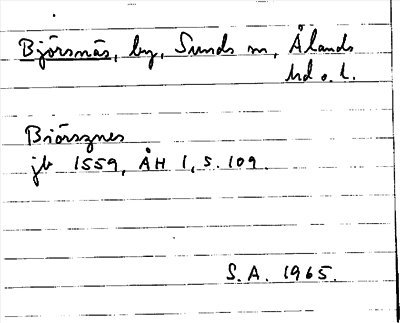 Björsnäs, by, Sunds sn, Ålands
hd o. l.
Biörsznes
jb 1559, ÅH 1, s. 109.
S.A. 1965.